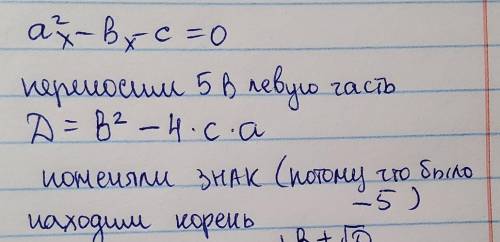 a²x - bx - c = 0
переносим 5 в левую часть
D = b² - 4 · c · a
поменяли знак (потому что было
-5)
находим корень